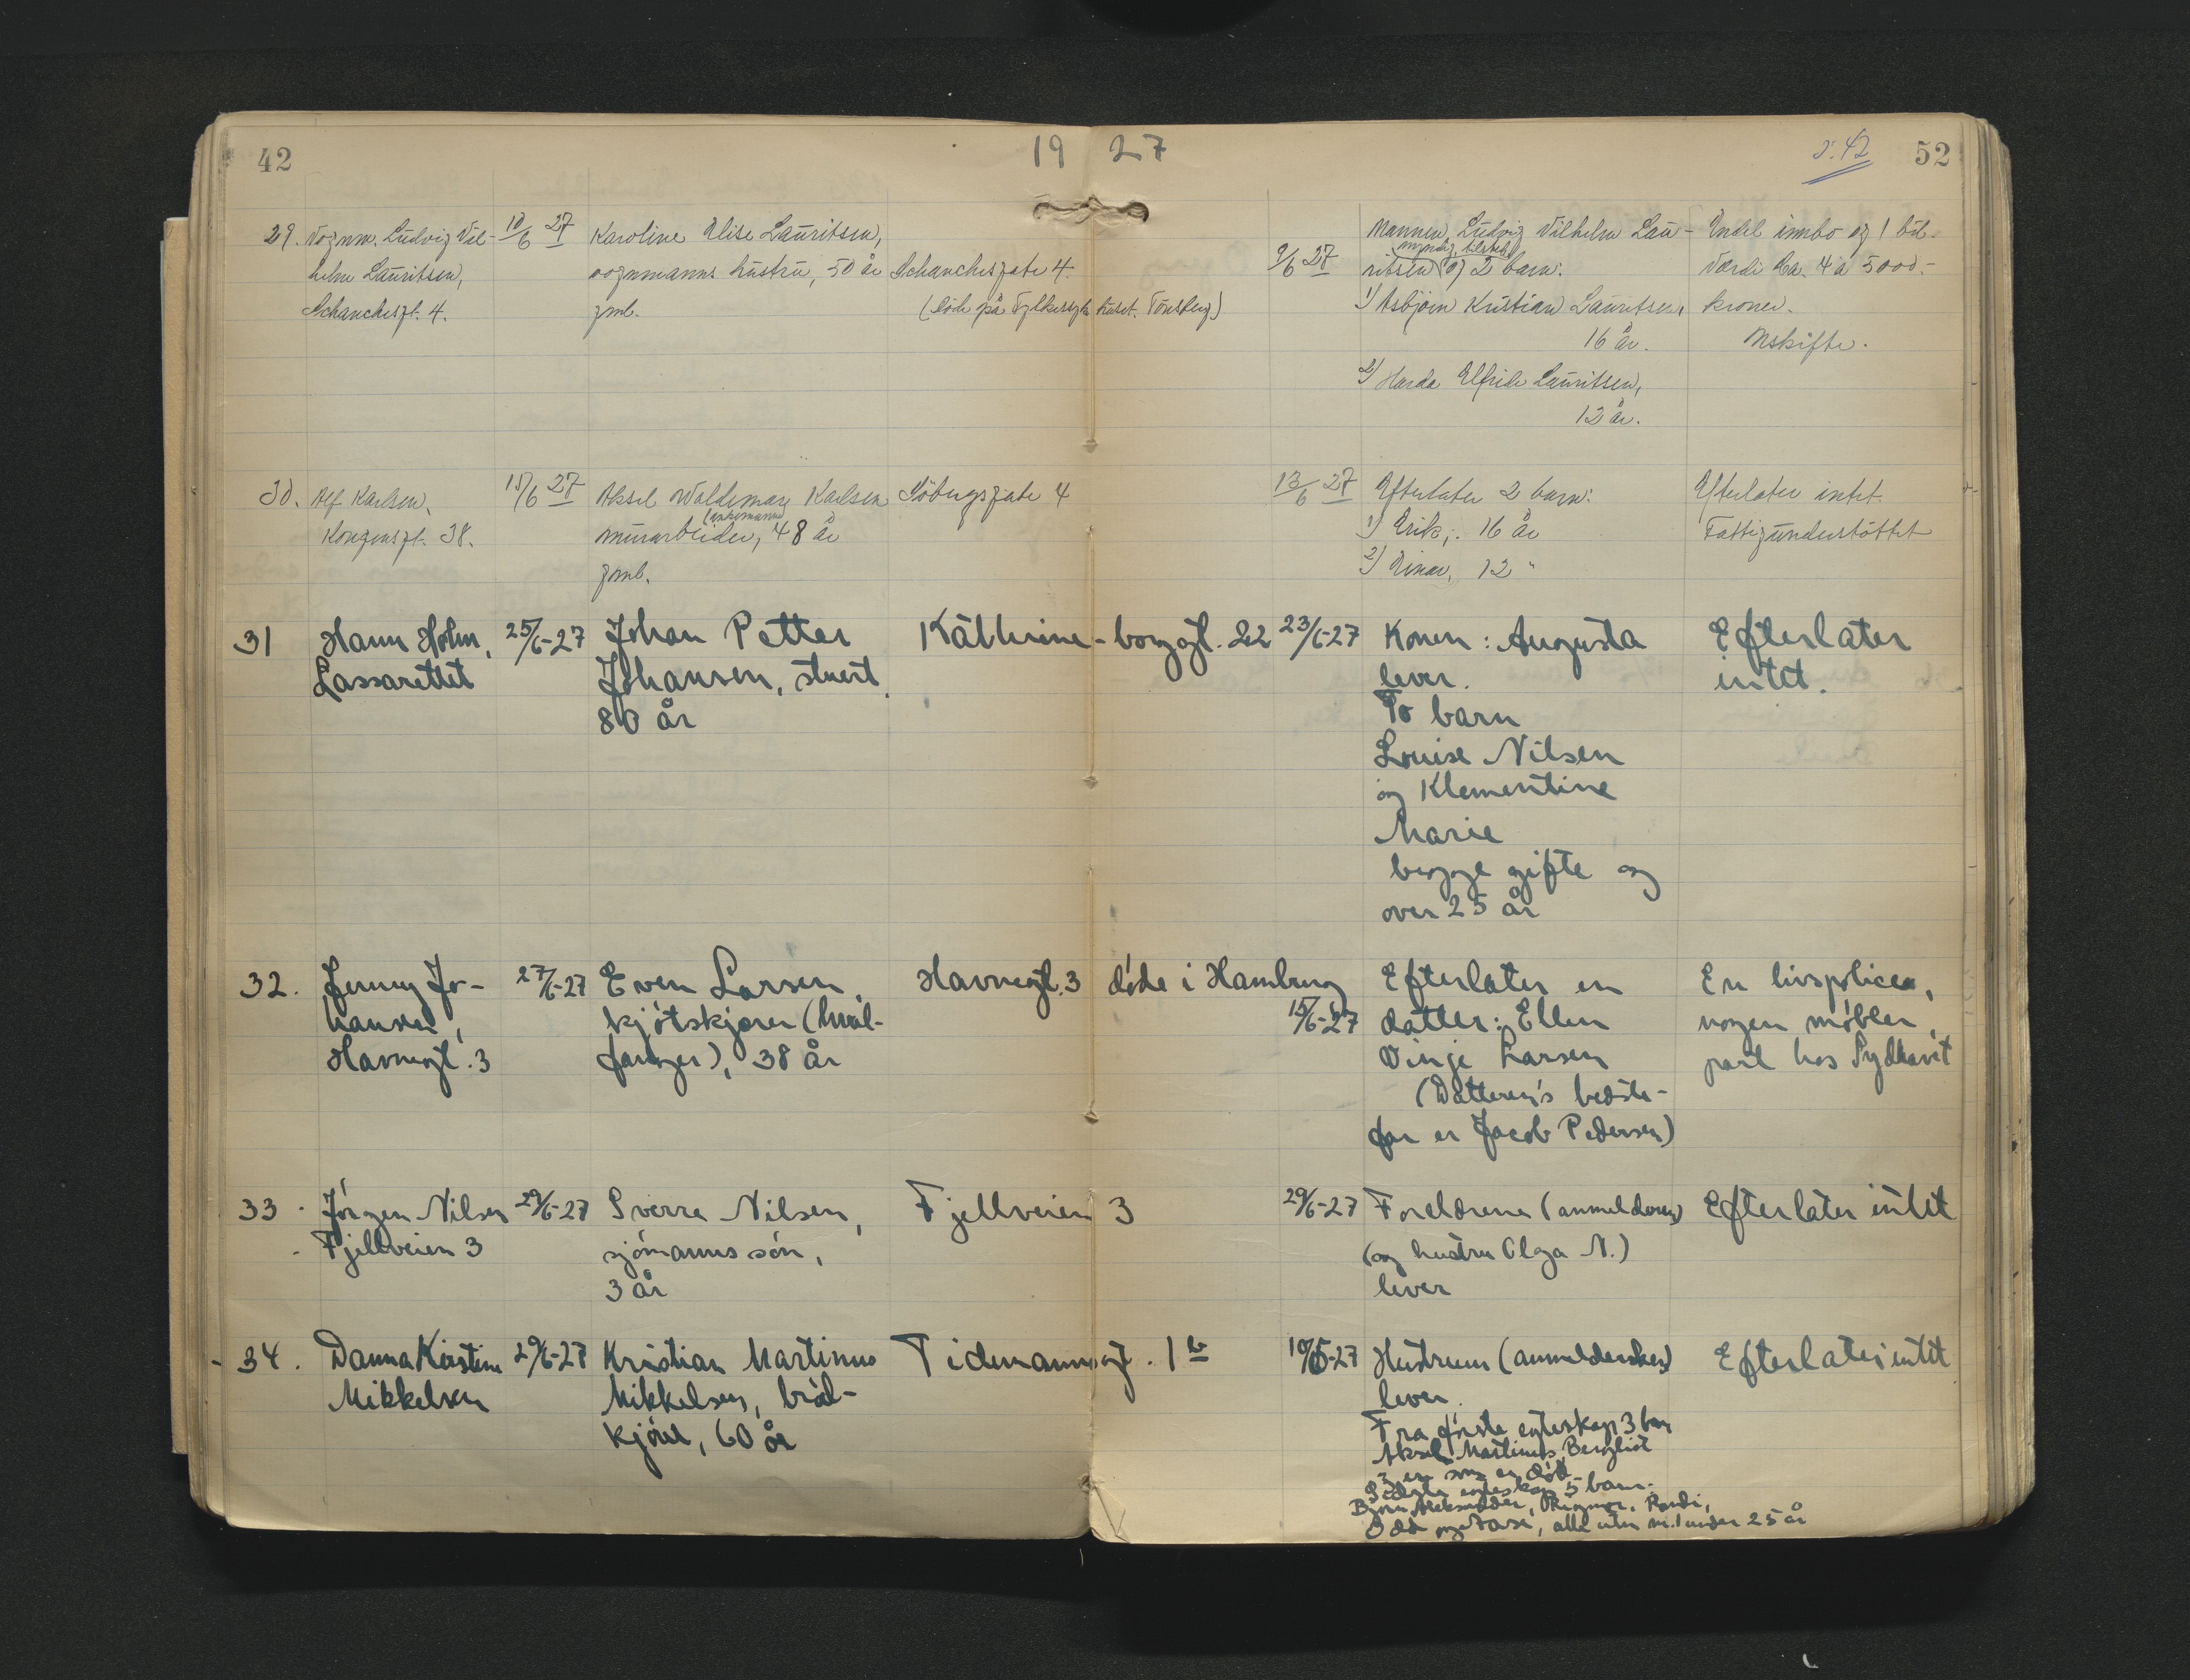 42
19 27
s. 42
52
29. Vognm. Ludvig Vil-
helm Lauritsen,
Schanchesgt. 4.
10/6 27
Karoline Elise Lauritsen,
vognmanns hustru, 50 år
gmb.
Schanchesgate 4.
(döde på Fylkessyke huset. Tönsberg)
9/6 27
Mannen, Ludvig Vilhelm Lau-
ritsen og 2 barn:
1) Asbjörn Kristian Lauritsen,
16 år.
2) Harda Elfride Lauritsen,
12 år.
Endel innbo og 1 bil.
Værdi ca. 4 à 5000.-
kroner.
Uskifte.
30. Alf Karlsen,
Kongensgt. 38.
15/6 27
Aksel Waldemar Karlsen
(enkemann)
murarbeider, 48 år
gmb.
Söbergsgate 4
13/6 27
Efterlater 2 barn:
1) Erik, 16 år
2) Einar, 12 "
Efterlater intet.
Fattigunderstöttet
31
Hann Holm,
Lassarettet
25/6-27
Johan Petter
Johansen, stuert,
80 år
Käthrine-borggt. 22
23/6-27
Konen: Augusta
lever.
To barn
Louise Nilsen
og Klementine
Marie
begge gifte og
over 25 år
Efterlater
intet.
32.
Jenny Jo-
hansen,
Havnegt. 3
27/6-27
Even Larsen
kjötskjærer (hval-
fanger), 38 år
Havnegt. 3
döde i Hamburg
15/6-27
Efterlater en
datter: Ellen
Vinje Larsen
(Datteren's bedste-
far er Jacob Pedersen)
En livspolice,
nogen möbler,
part hos Sydhavet
33.
Jörgen Nilsen
Fjellveien 3
29/6-27
Sverre Nilsen,
sjömanns sön,
3 år
Fjellveien 3
29/6-27
Foreldrene (anmelderen)
(og hustru Olga N.)
lever
Efterlater intet
34.
Danna Kirstine
Mikkelsen
29/6-27
Kristian Martinus
Mikkelsen, bröd-
kjörer, 60 år
Tidemannsgt. 1 b
Hustruen (anmeldersken)
lever.
Fra förste egteskap 3 barn
Aksel, Martinus, Bergliot
er död
egteskap 5 barn:
Björn Aleksander, Randi,
Odd og Aase, alle uten nr. 1 under 25 år
Efterlater intet